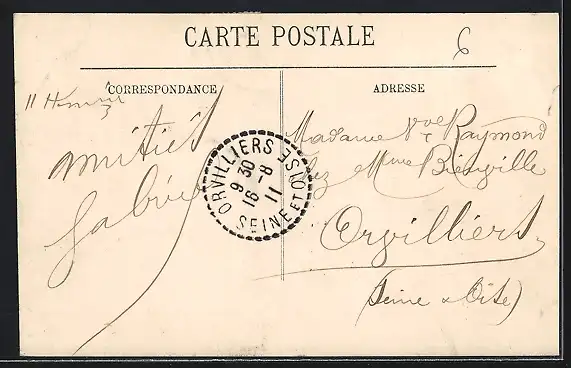 CARTE POSTALE
6
CORRESPONDANCE
ADRESSE
amitiés
Madame Vve Raymond
chez Mme Bienville
Orvilliers
(Seine & Oise)
ORVILLIERS
9 30
16 - 8
11
SEINE ET OISE